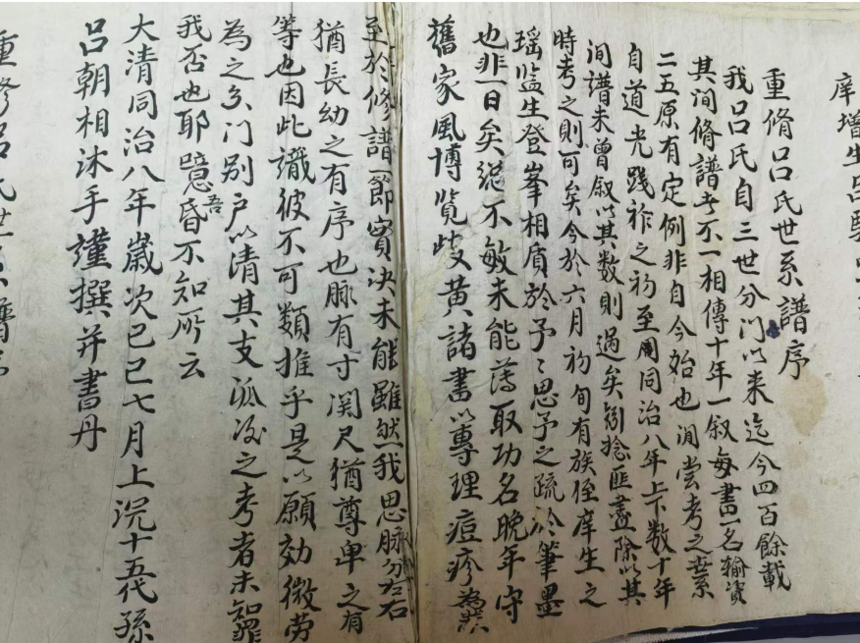 庠增生呂
重脩呂氏世系譜序
我呂氏自三世分門以来迄今四百餘載
其間脩譜者不一相傳十年一叙每書一名輸資
二五原有定例非自今始也間嘗考之世系
自道光踐祚之初至同治八年上下数十年
间譜未曾叙以其数則過矣匪盡除以其
時考之則可矣今於六月初旬有族侄庠生之
瑶监生登峯相質於予予思予之疏於筆墨
也非一日矣総不敏未能荐取功名晚年守
舊家風博覧岐黄諸書以專理痘疹為
至於修譜一節實决未能雖然我思脉分左右
猶長幼之有序也脉有寸関尺猶尊卑之有
等也因此識彼不可類推乎是以願効微劳
為之分门别户以清其支派後之考者未知罪
我否也耶噫吾昏不知所云
大清同治八年歳次己巳七月上浣十五代孫
吕朝相沐手謹撰并書丹
重修吕氏世系譜序